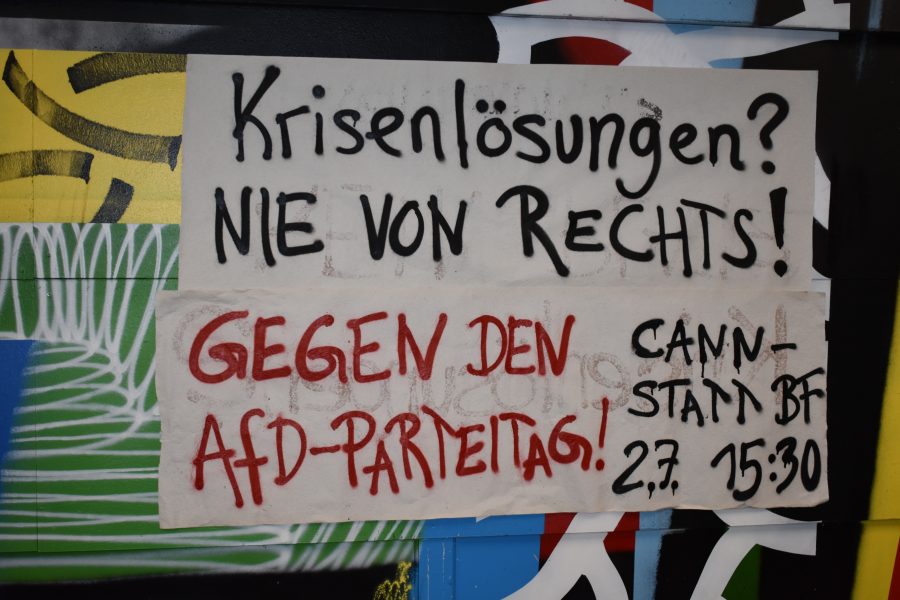 Krisenlösungen?
NIE VON RECHTS!
GEGEN DEN
AfD-PARTEITAG!
CANN-
STATT BF
2.7. 15:30